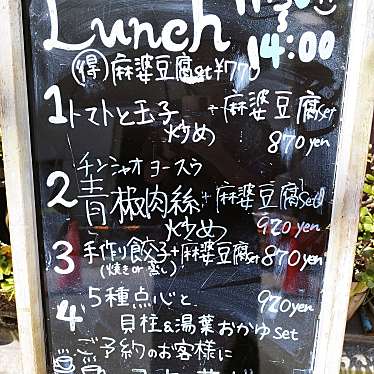 Lunch
14:00
㊝麻婆豆腐set ¥770
1 トマトと玉子炒め + 麻婆豆腐set
870yen
チンジャオロースう
2 青椒肉絲炒め + 麻婆豆腐set
920yen
3 手作り餃子+麻婆豆腐set 870yen
(焼きor蒸し)
4 5種点心と 920yen
貝柱&湯葉おかゆset
ご予約のお客様に